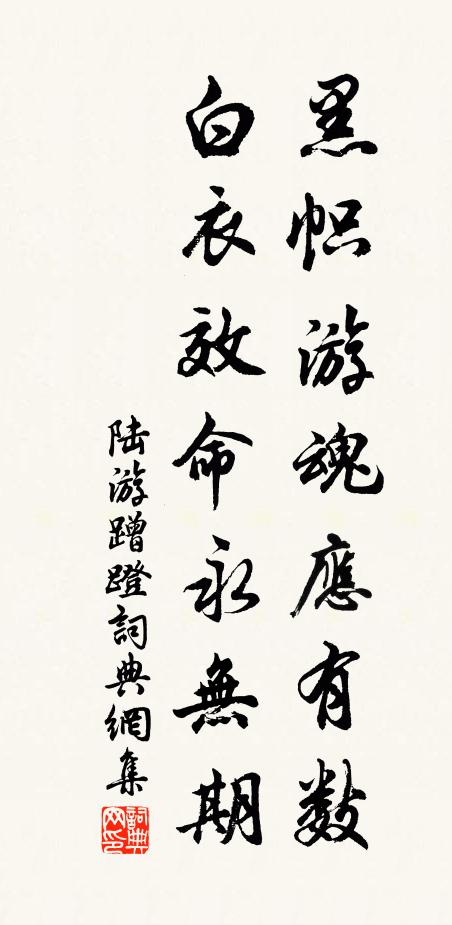 黑帜游魂應有数
白衣效命永無期
陆游蹭蹬詞典網集
詞典网印